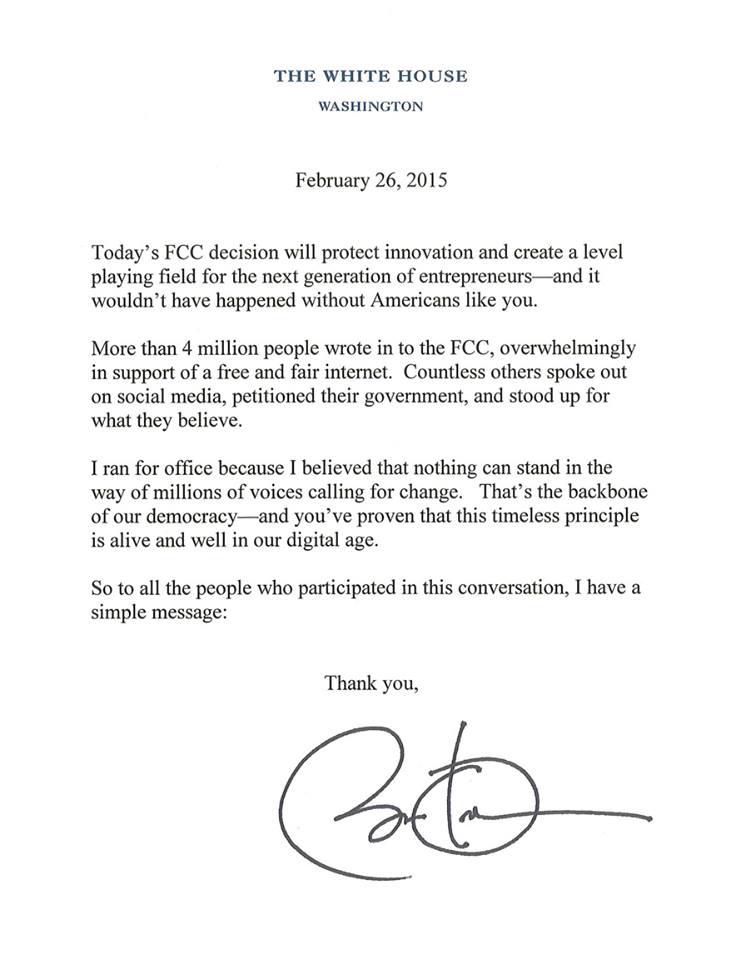 THE WHITE HOUSE
WASHINGTON
February 26, 2015
Today’s FCC decision will protect innovation and create a level
playing field for the next generation of entrepreneurs—and it
wouldn’t have happened without Americans like you.
More than 4 million people wrote in to the FCC, overwhelmingly
in support of a free and fair internet.  Countless others spoke out
on social media, petitioned their government, and stood up for
what they believe.
I ran for office because I believed that nothing can stand in the
way of millions of voices calling for change.   That’s the backbone
of our democracy—and you’ve proven that this timeless principle
is alive and well in our digital age.
So to all the people who participated in this conversation, I have a
simple message:
Thank you,